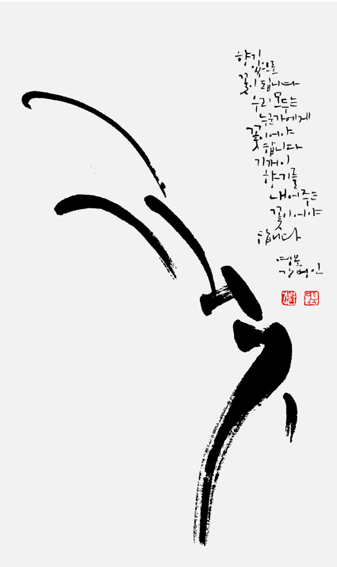 향기
있으므로
꽃이 됩니다
우리 모두는
누군가에게
꽃이어야
합니다
기꺼이
향기를
내어주는
꽃이어야
합니다
강병인